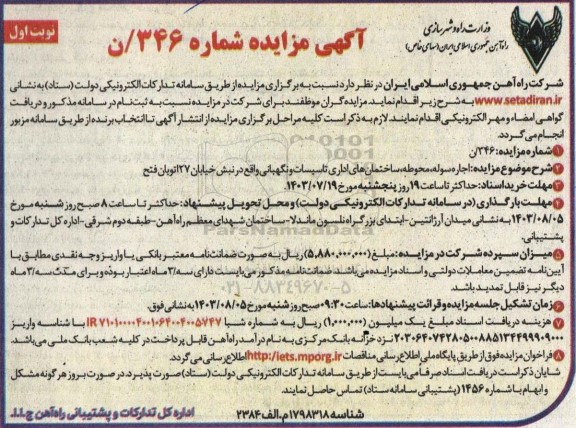 نوبت اول
وزارت راه و شهرسازی
راه آهن جمهوری اسلامی ایران (سهامی خاص)
آگهی مزایده شماره ۳۴۶/ن
شرکت راه آهن جمهوری اسلامی ایران در نظر دارد نسبت به برگزاری مزایده از طریق سامانه تدارکات الکترونیکی دولت (ستاد) به نشانی
www.setadiran.ir به شرح زیر اقدام نماید. مزایده گران موظفند برای شرکت در مزایده نسبت به ثبت نام در سامانه مذکور و دریافت
گواهی امضاء و مهر الکترونیکی اقدام نمایند. لازم به ذکر است کلیه مراحل برگزاری مزایده از انتشار آگهی تا انتخاب برنده از طریق سامانه مزبور
انجام می گردد.
۱ شماره مزایده: ۳۴۶/ن
۲ شرح موضوع مزایده: اجاره سوله، محوطه، ساختمان های اداری تاسیسات و نگهبانی واقع در نبش خیابان ۲۷ اتوبان فتح
۳ مهلت خرید اسناد: حداکثر تا ساعت ۱۹ روز پنجشنبه مورخ ۱۴۰۳/۰۷/۱۹
۴ مهلت بارگذاری (در سامانه تدارکات الکترونیکی دولت) و محل تحویل پیشنهاد: حداکثر تا ساعت ۸ صبح روز شنبه مورخ
۱۴۰۳/۰۸/۰۵ به نشانی میدان آرژانتین- ابتدای بزرگراه نلسون ماندلا- ساختمان شهدای معظم راه آهن- طبقه دوم شرقی- اداره کل تدارکات و
پشتیبانی.
۵ میزان سپرده شرکت در مزایده: مبلغ (۵,۸۸۰,۰۰۰,۰۰۰) ریال به صورت ضمانت نامه معتبر بانکی یا واریز وجه نقدی مطابق با
آیین نامه تضمین معاملات دولتی و اسناد مزایده می باشد. ضمانت نامه مذکور می بایست دارای سه/۳ ماه اعتبار بوده و برای مدت سه/۳ ماه
دیگر نیز قابل تمدید باشد.
۶ زمان تشکیل جلسه مزایده و قرائت پیشنهادها: ساعت ۰۹:۳۰ صبح روز شنبه مورخ ۱۴۰۳/۰۸/۰۵ به نشانی فوق.
۷ هزینه دریافت اسناد مبلغ یک میلیون (۱,۰۰۰,۰۰۰) ریال به شماره شبا IR۷۱۰۱۰۰۰۰۴۰۰۱۰۶۴۰۰۴۰۰۵۷۴۷ با شناسه واریز
۲۰۳۰۶۴۰۷۴۲۸۰۵۰۰۸۸۵۱۳۴۴۹۹۹۰۹۰۰۰ نزد خزانه بانک مرکزی به نام درآمد راه آهن قابل پرداخت در کلیه شعب بانک ملی می باشد.
۸ فراخوان مزایده فوق از طریق پایگاه ملی اطلاع رسانی مناقصات http://iets.mporg.ir اطلاع رسانی می گردد.
شایان ذکر است دریافت اسناد صرفا می بایست از طریق سامانه تدارکات الکترونیکی دولت (ستاد) صورت پذیرد. در صورت بروز هر گونه مشکل
و ابهام با شماره ۱۴۵۶ (پشتیبانی سامانه ستاد) تماس حاصل نمایند.
شناسه ۱۷۹۸۳۱۸ م.الف ۲۳۸۴
اداره کل تدارکات و پشتیبانی راه آهن ج.ا.ا.
ParsNamadData
۰۲۱-۸۸۳۴۹۶۷۰-۵